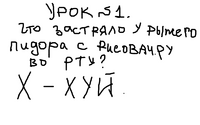 УРОК №1.
ЧТО ЗАСТРЯЛО У РЫЖЕГО
ПИДОРА С РИСОВАЧ.РУ
ВО РТУ?
Х - ХУЙ